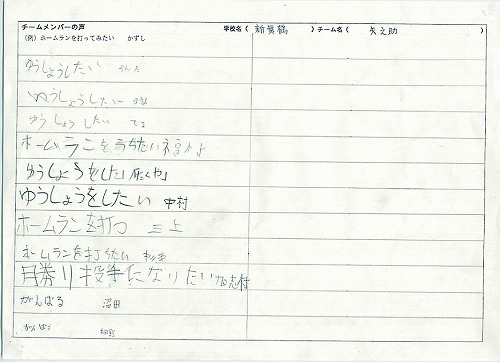 チームメンバーの声 学校名（ 新舞鶴 ）チーム名（ 矢之助 ）
（例）ホームランを打ってみたい かずし
ゆうしょうしたい
ゆうしょうしたい
ゆうしょうしたい てる
ホームランをうちたい
ゆうしょうをしたい
ゆうしょうをしたい 中村
ホームランを打つ 三上
ホームランを打ちたい
月勝り投手になりたい
がんばる 沼田
がんばる